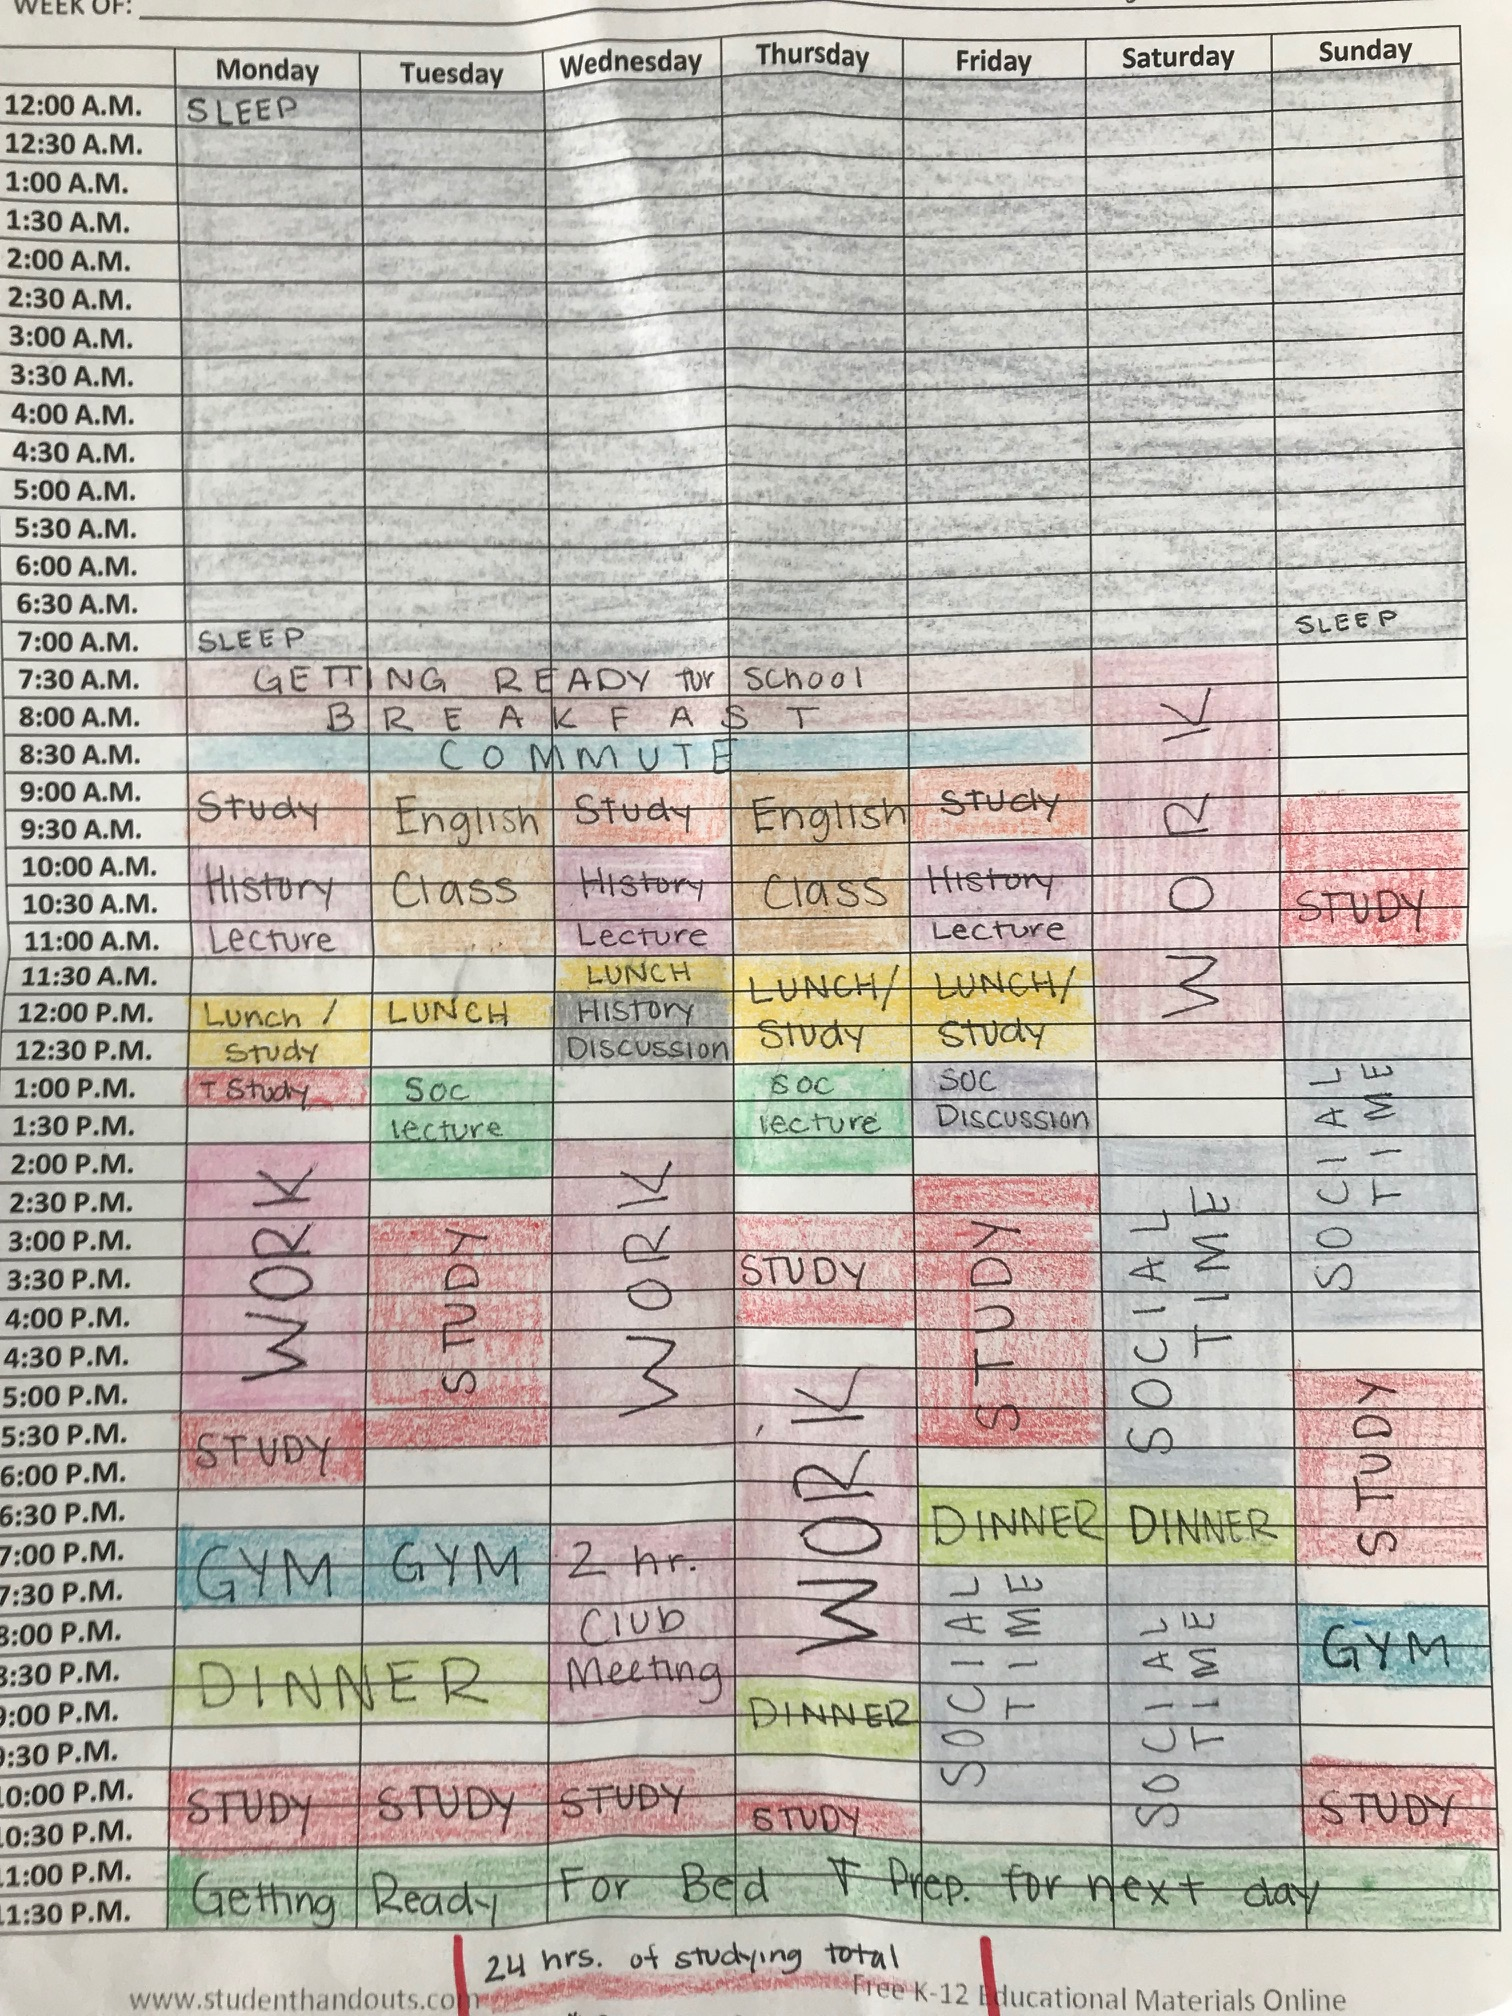 WEEK OF:
Monday Tuesday Wednesday Thursday Friday Saturday Sunday
12:00 A.M. SLEEP
12:30 A.M.
1:00 A.M.
1:30 A.M.
2:00 A.M.
2:30 A.M.
3:00 A.M.
3:30 A.M.
4:00 A.M.
4:30 A.M.
5:00 A.M.
5:30 A.M.
6:00 A.M.
6:30 A.M.
7:00 A.M. SLEEP SLEEP
7:30 A.M. GETTING READY for School
8:00 A.M. BREAKFAST WORK
8:30 A.M. COMMUTE
9:00 A.M. Study English Study English Study
9:30 A.M.
10:00 A.M. History Class History Class History
10:30 A.M. STUDY
11:00 A.M. Lecture Lecture Lecture
11:30 A.M. LUNCH LUNCH/ LUNCH/
12:00 P.M. Lunch / LUNCH HISTORY Study Study
12:30 P.M. Study DISCUSSION
1:00 P.M. + Study Soc Soc SOC SOCIAL TIME
1:30 P.M. lecture lecture DISCUSSION
2:00 P.M. WORK WORK SOCIAL TIME
2:30 P.M. STUDY
3:00 P.M. STUDY
3:30 P.M. STUDY
4:00 P.M.
4:30 P.M.
5:00 P.M. WORK STUDY
5:30 P.M. STUDY
6:00 P.M.
6:30 P.M. DINNER DINNER
7:00 P.M. GYM GYM 2 hr.
7:30 P.M. SOCIAL TIME SOCIAL TIME
8:00 P.M. Club GYM
8:30 P.M. DINNER Meeting
9:00 P.M. DINNER
9:30 P.M.
10:00 P.M. STUDY STUDY STUDY STUDY STUDY
10:30 P.M.
11:00 P.M. Getting Ready For Bed + Prep. for next day
11:30 P.M.
24 hrs. of studying total
www.studenthandouts.com Free K-12 Educational Materials Online